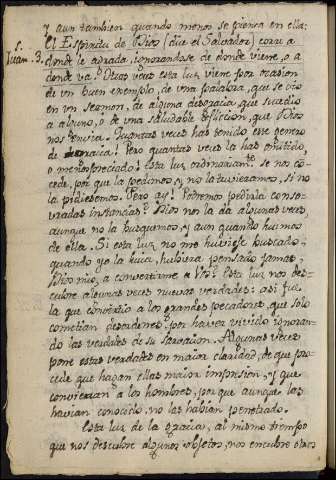 y aun tambien quando menos se piensa en ella:
S. Juan. 3.
El Espiritu de Dios (dice el Salvador) corre a
donde le agrada, ignorandose de donde viene, o a
donde va. Otras vezes esta luz viene por ocasion
de un buen exemplo, de una palabra, que se oio
en un sermon, de alguna desgracia que sucedio
a alguno, ò de una saludable afliccion, que Dios
nos envia. Quantas veces has tenido este genero
de gracia! Pero quantas veces la has omitido,
o menospreciado! Esta luz ordinariamte. se nos con
cede, por que la pedimos, y no la tuvieramos, si no
la pidiesemos. Pero ay! Podremos pedirla conso-
instancias? Dios no la da algunas veces,
aunque no la busquemos, y aun quando huimos
de ella. Si esta luz no me huviese buscado,
quando yo la huia, hubiera pensado jamas,
Dios mio, a convertirme a Vos? Esta luz nos des-
cubre algunas veces nuevas verdades: asi fue
la que convertio a los grandes pecadores, que solo
cometian desordenes por haver vivido ignoran-
do las verdades de su salvacion. Algunas veces
pone estas verdades en maior claridad, de que pro-
cede que hagan ellas maior impresion, y que
conviertan a los hombres, por que aunque las
havian conocido, no las habian penetrado.
Esta luz de la gracia, al mismo tiempo
que nos descubre algunos objetos, nos encubre otros